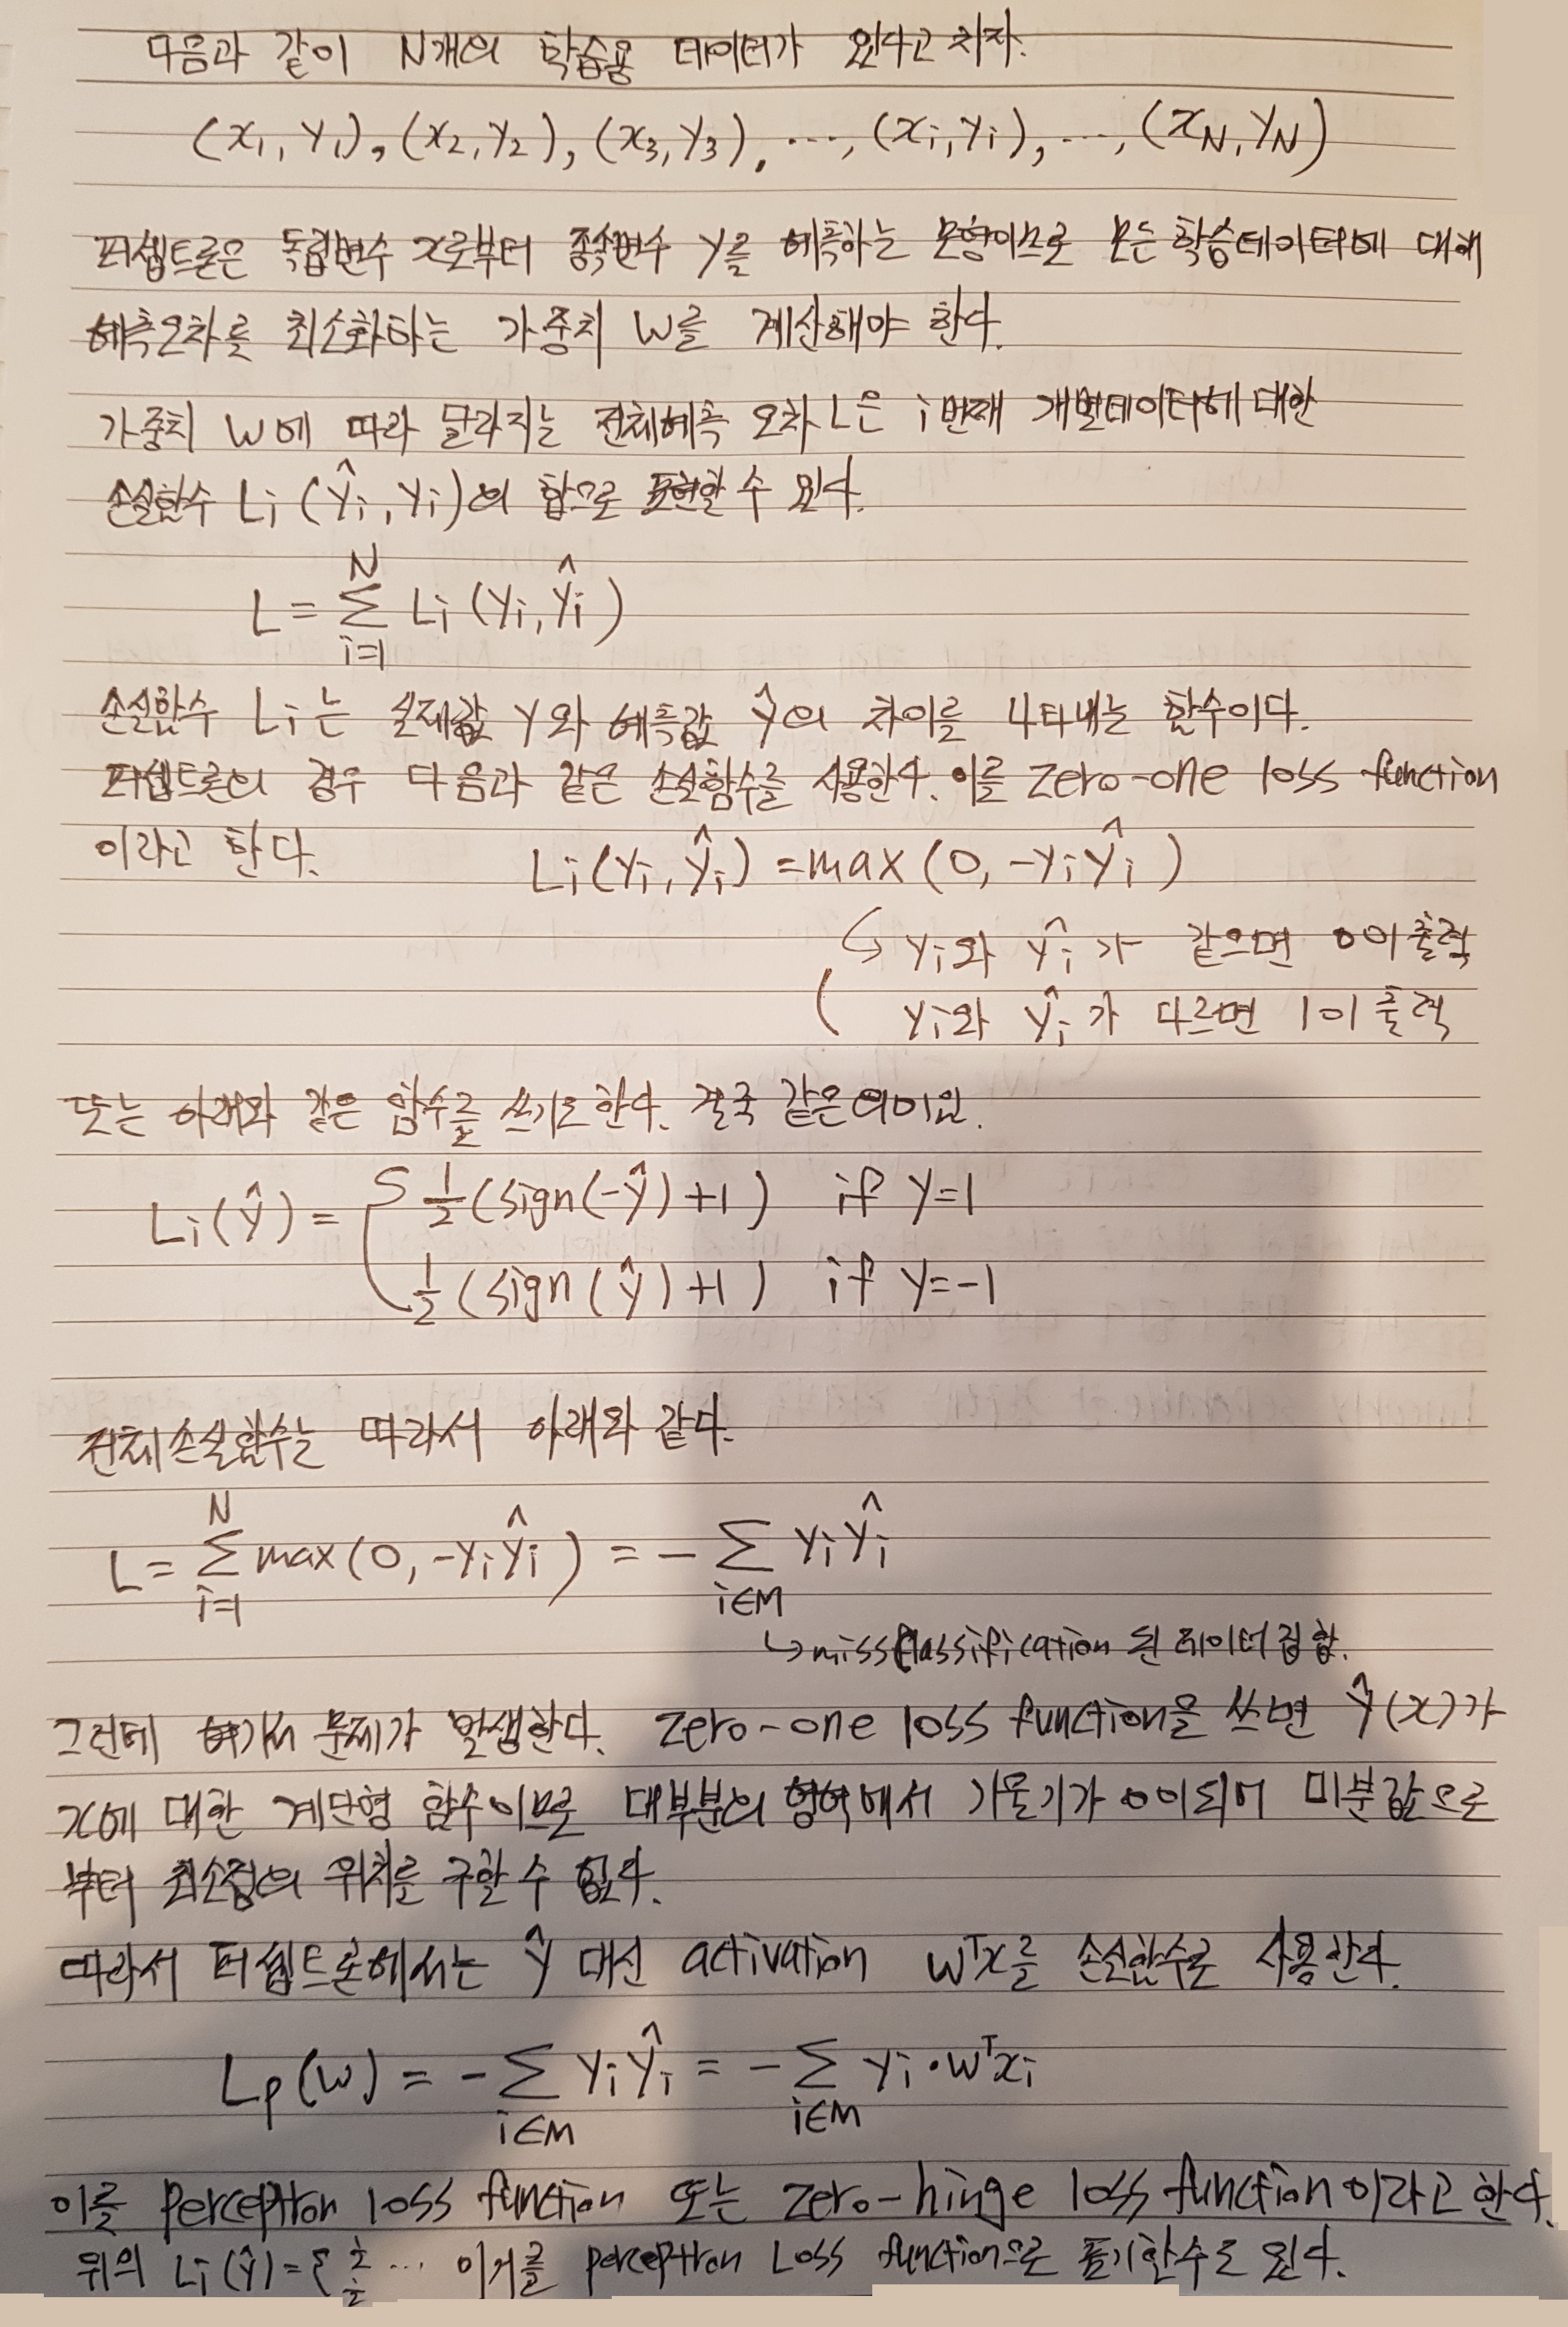 다음과 같이 N개의 학습용 데이터가 있다고 치자.
(x₁, y₁), (x₂, y₂), (x₃, y₃), ..., (xᵢ, yᵢ), ..., (x_N, y_N)
퍼셉트론은 독립변수 x로부터 종속변수 y를 예측하는 모형이므로 모든 학습데이터에 대해
예측오차를 최소화하는 가중치 W를 계산해야 한다.
가중치 W에 따라 달라지는 전체예측 오차 L은 i번째 개별데이터에 대한
손실함수 Lᵢ(ŷᵢ, yᵢ)의 합으로 표현할 수 있다.
L = Σ_{i=1}^{N} Lᵢ(yᵢ, ŷᵢ)
손실함수 Lᵢ는 실제값 y와 예측값 ŷ의 차이를 나타내는 함수이다.
퍼셉트론의 경우 다음과 같은 손실함수를 사용한다. 이를 zero-one loss function
이라고 한다. Lᵢ(yᵢ, ŷᵢ) = max(0, -yᵢŷᵢ)
↳ yᵢ와 ŷᵢ가 같으면 0이 출력
( yᵢ와 ŷᵢ가 다르면 1이 출력
또는 아래와 같은 함수를 쓰기도 한다. 결국 같은 의미임.
Lᵢ(ŷ) = { ½(sign(-ŷ)+1) if y=1
½(sign(ŷ)+1) if y=-1
전체손실함수는 따라서 아래와 같다.
L = Σ_{i=1}^{N} max(0, -yᵢŷᵢ) = - Σ_{i∈M} yᵢŷᵢ
↳ missclassification 된 데이터 집합.
그런데 여기서 문제가 발생한다. zero-one loss function을 쓰면 ŷ(x)가
x에 대한 계단형 함수이므로 대부분의 영역에서 기울기가 0이 되어 미분값으로
부터 최소점의 위치를 구할 수 없다.
따라서 퍼셉트론에서는 ŷ 대신 activation wᵀx를 손실함수로 사용한다.
Lₚ(w) = - Σ_{i∈M} yᵢŷᵢ = - Σ_{i∈M} yᵢ·wᵀxᵢ
이를 perceptron loss function 또는 zero-hinge loss function이라고 한다.
위의 Lᵢ(ŷ) = { ½ ½ ... 이거를 perceptron Loss function으로 표기할수도 있다.